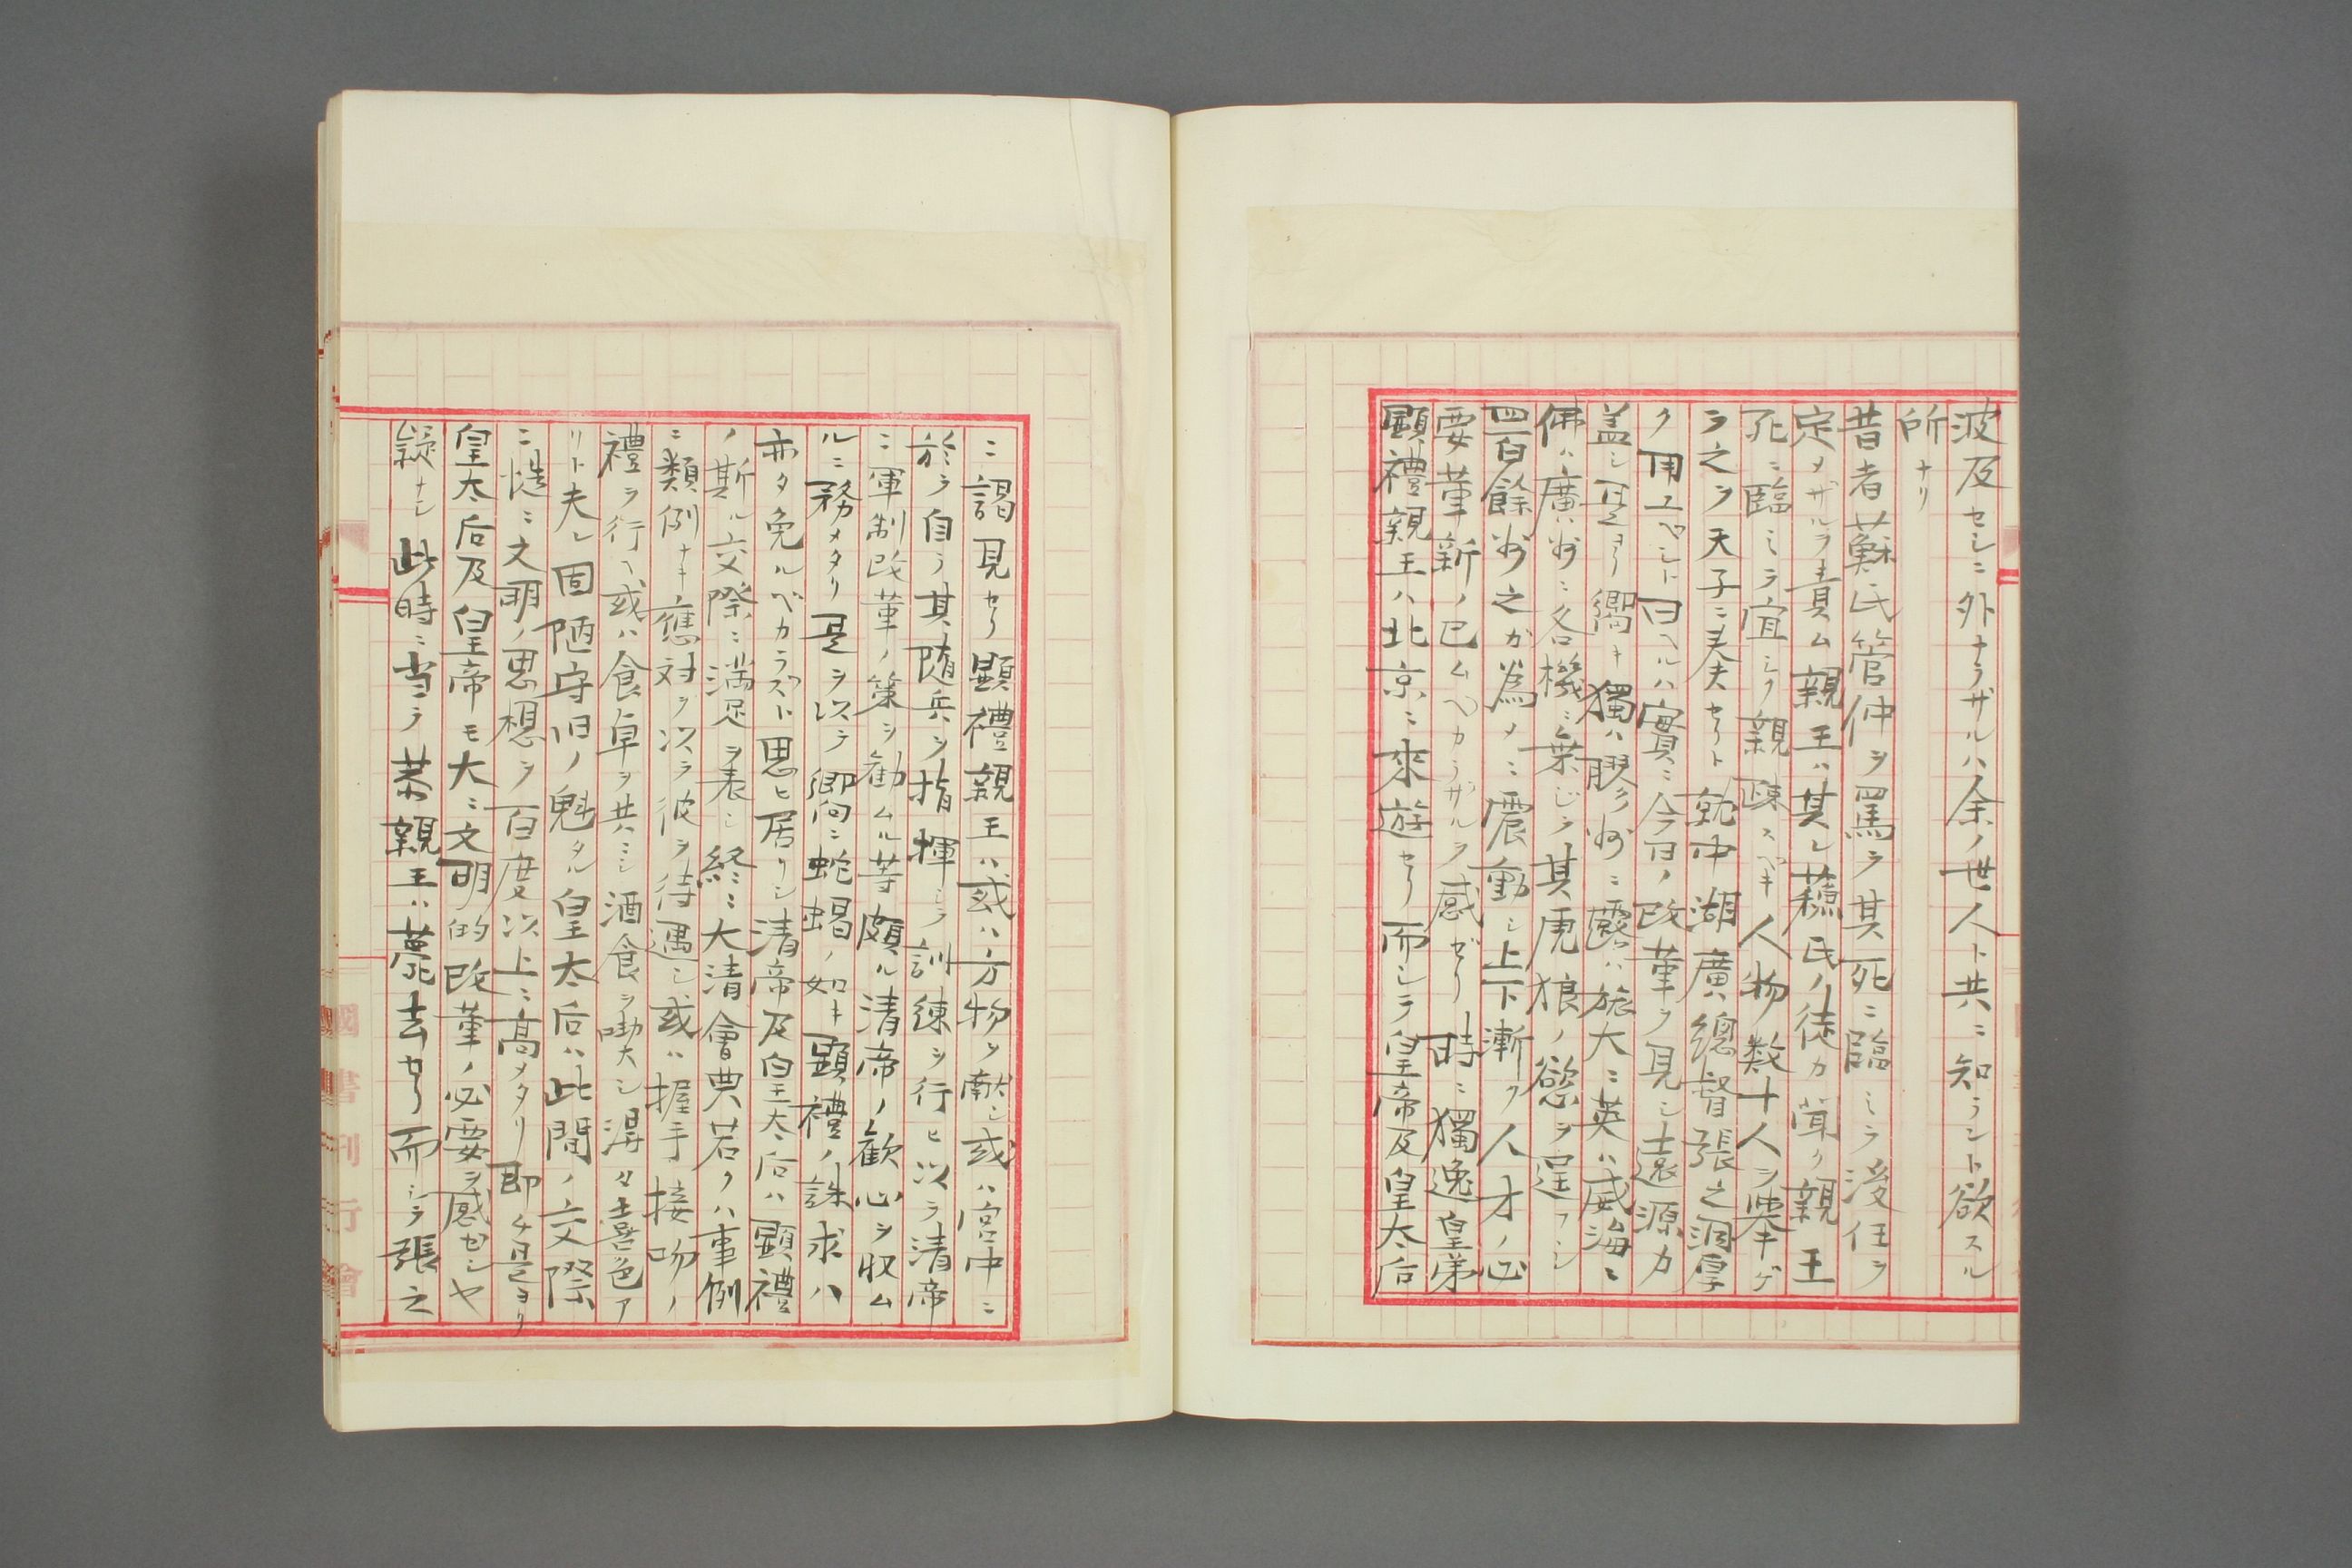 波及セシニ外ナラザルハ余ノ世人ト共ニ知ラント欲スル
所ナリ
昔者蘇氏管仲ヲ罵ラ其死ニ臨ミテ後任ヲ
定メザルヲ責ム親王ハ其レ蘓氏ノ徒カ聞ク親王
死ニ臨ミテ宜シク親疎スベキ人物数十人ヲ挙ゲ
テ之ヲ天子ニ奏セリト就中湖廣總督張之洞厚
ク用ユベシト曰ヘルハ實ニ今日ノ改革ヲ見シ遠源カ
盖シ是ヨリ嚮キ獨ハ膠州ニ露ハ旅大ニ英ハ威海ニ
佛ハ廣州ニ各機ニ乗ジテ其虎狼ノ慾ヲ逞フシ
四百餘州之ガ為メニ震動シ上下漸ク人才ノ必
要革新ノ已ムベカラザルヲ感ゼリ時ニ獨逸皇弟
顕禮親王ハ北京ニ來遊セリ而シテ皇帝及皇太后
ニ謁見セリ顕禮親王ハ或ハ方物ヲ献シ或ハ宮中ニ
於テ自ラ其随兵ヲ指揮シテ訓練ヲ行ヒ以テ清帝
ニ軍制改革ノ策ヲ勸ムル等頗ル清帝ノ歡心ヲ収ム
ルニ務メタリ是ヲ以テ嚮ニ蛇蝎ノ如キ顕禮ノ誅求ハ
亦タ免ルベカラズト思ヒ居リシ清帝及皇太后ハ顕禮
ノ斯ル交際ニ満足ヲ表シ終ニ大清會典若クハ事例
ニ類例ナキ應対ヲ以テ彼ヲ待遇シ或ハ握手接吻ノ
禮ヲ行ヘ或ハ食卓ヲ共ニシ酒食ヲ喫シ喜色ア
リト夫レ固陋守旧ノ魁タル皇太后ハ此間ノ交際
ニ文明ノ思想ヲ百度以上ニ高メタリ即チ是ヨリ
皇太后及皇帝モ大ニ文明的改革ノ必要ヲ感ゼシヤ
疑ナシ此時ニ当テ恭親王ハ薨去セリ而シテ張之
國書刊行會